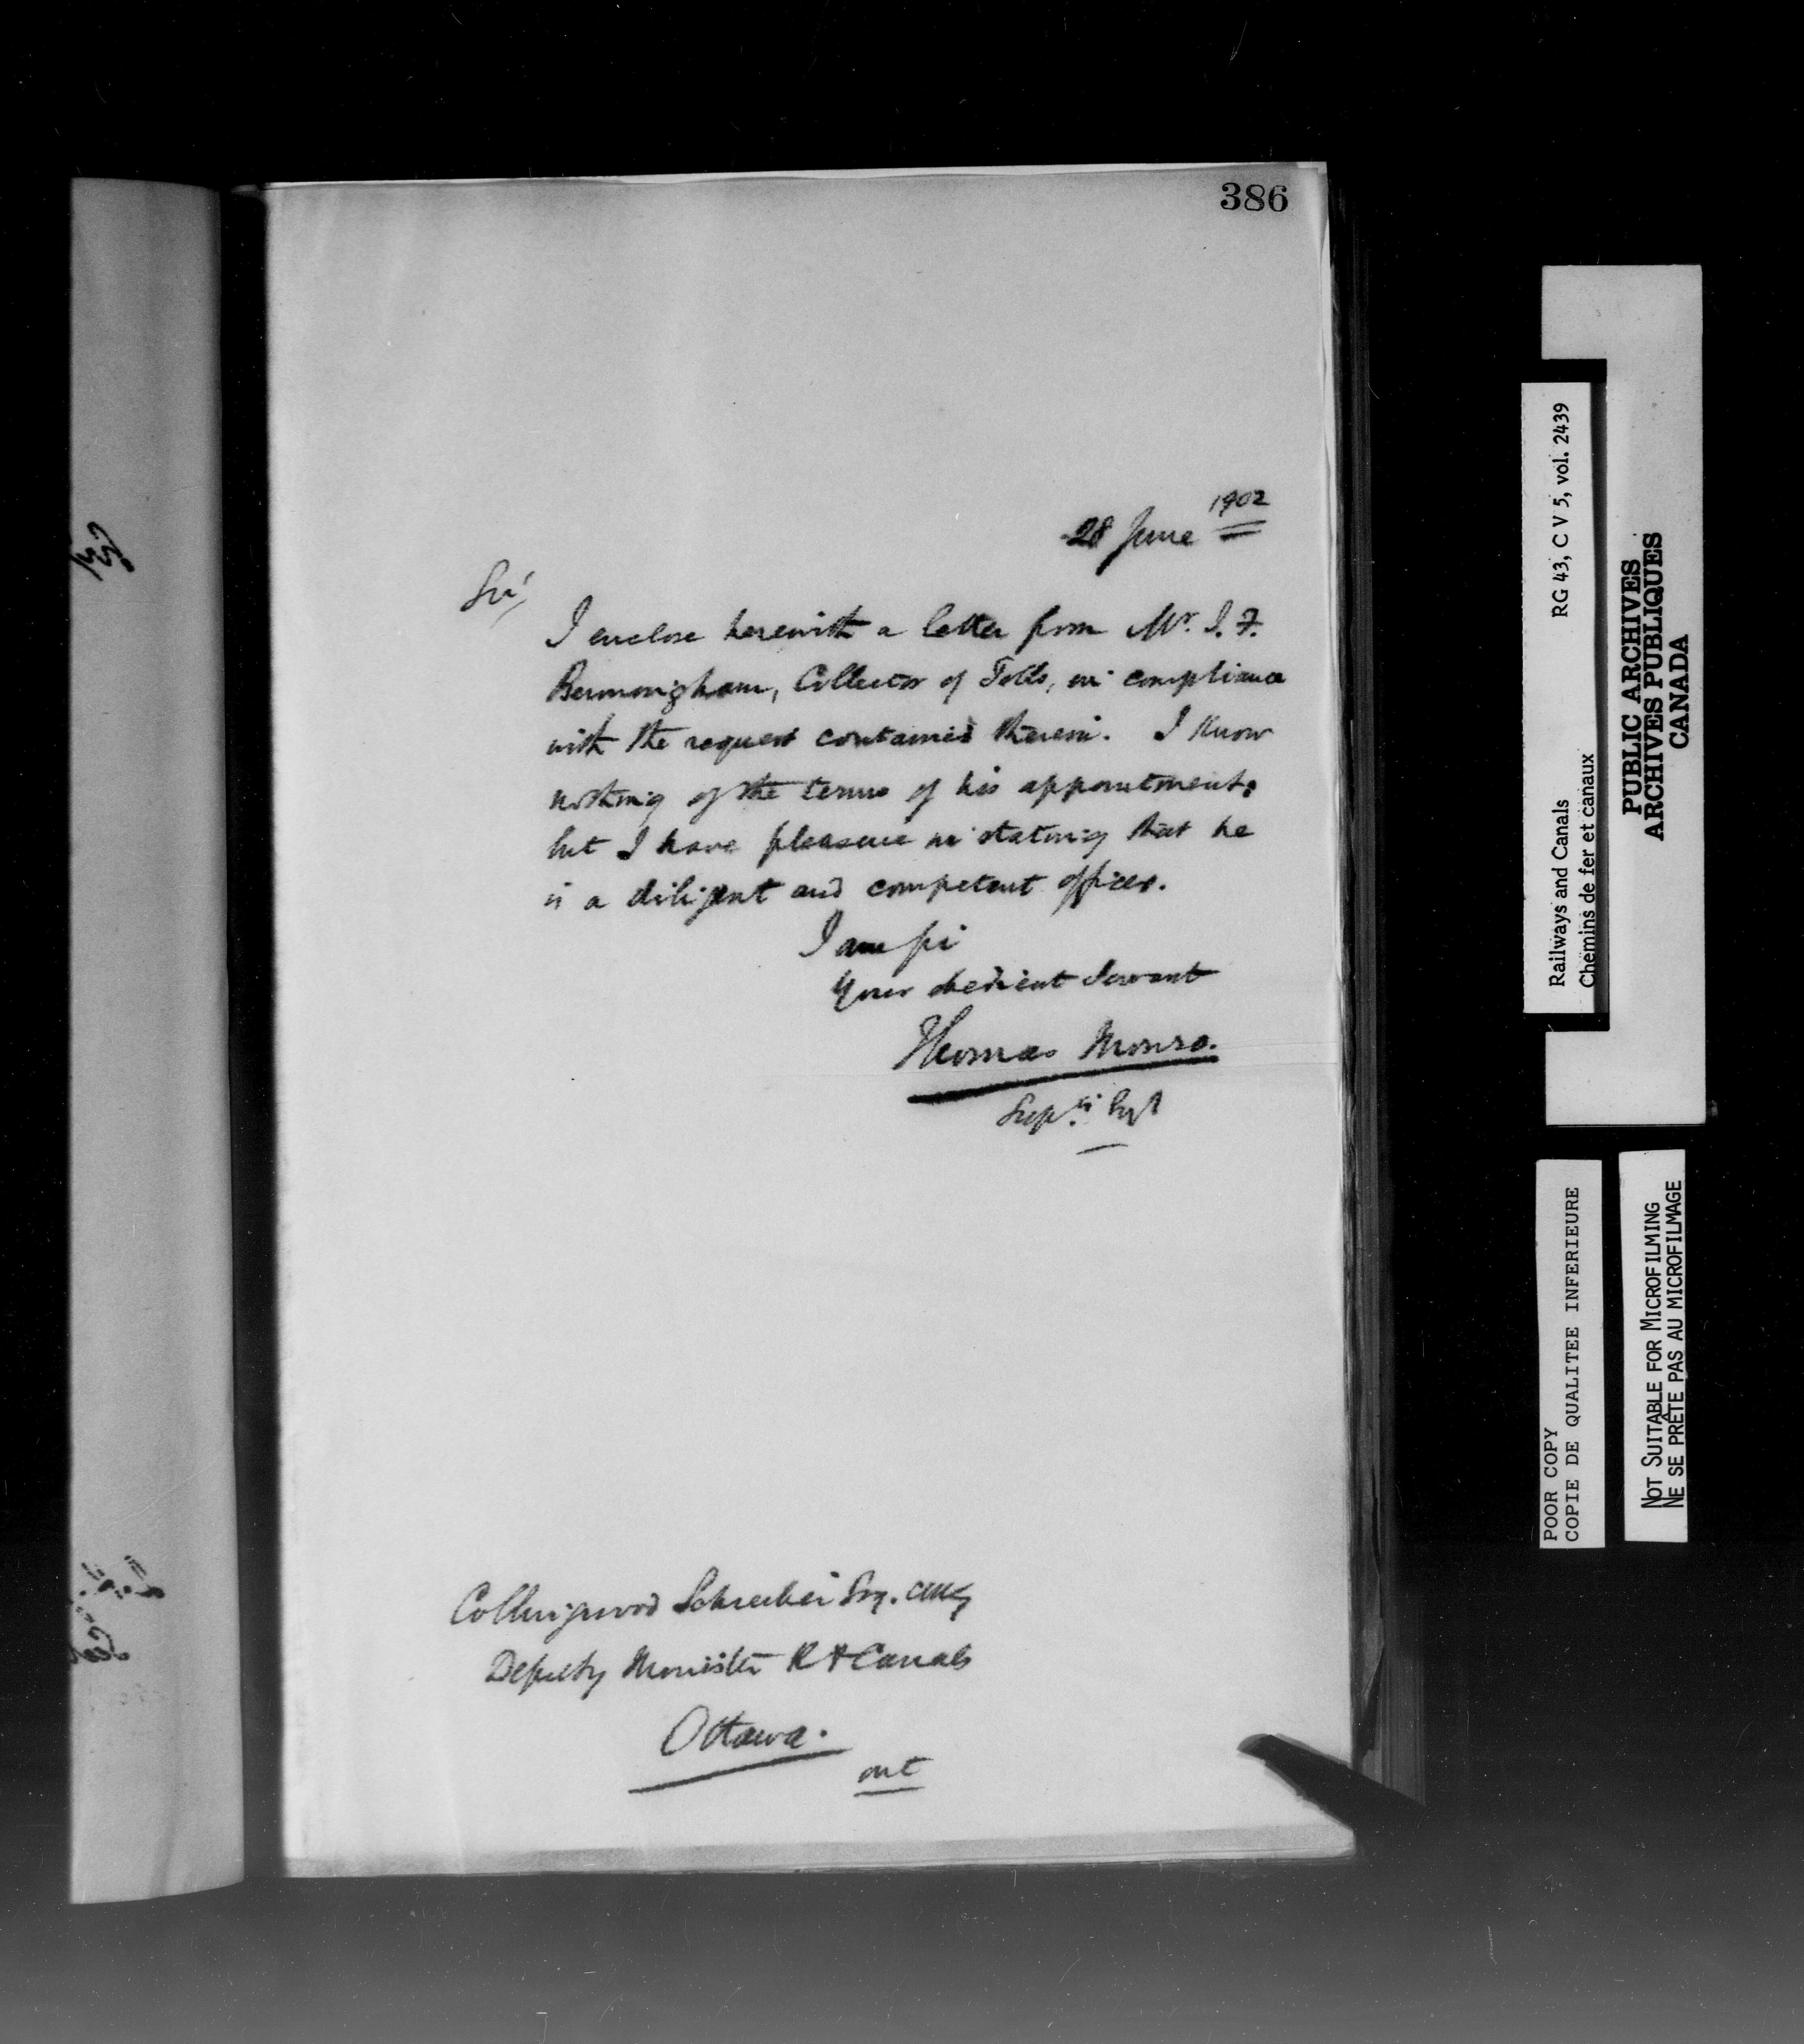 386
28 June 1902
Sir,
I enclose herewith a letter from Mr. J. F.
Bermingham, Collector of Tolls, in compliance
with the request contained therein. I know
nothing of the terms of his appointment;
but I have pleasure in stating that he
is a diligent and competent officer.
I am sir
Your obedient Servant
Thomas Monro.
Supg Engr
Collingwood Schreiber Esq. CMG
Deputy Minister R & Canals
Ottawa.
Railways and Canals RG 43, C V 5, vol. 2439
Chemins de fer et canaux
PUBLIC ARCHIVES
ARCHIVES PUBLIQUES
CANADA
POOR COPY
COPIE DE QUALITEE INFERIEURE
NOT SUITABLE FOR MICROFILMING
NE SE PRÊTE PAS AU MICROFILMAGE